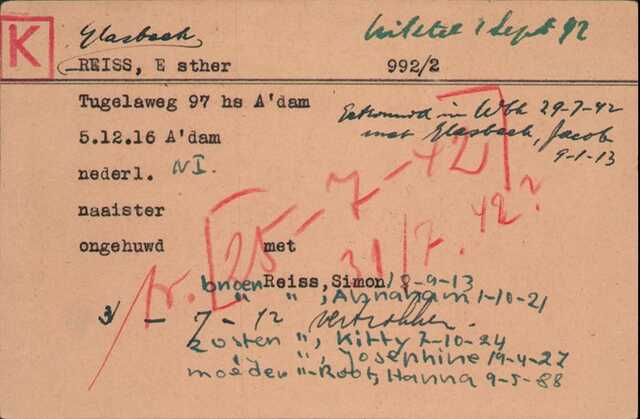 K
Glasbeek
Uitstel 1 Sept 42
REISS, E sther 992/2
Tugelaweg 97 hs A'dam
Getrouwd in Wbk 29-7-42
5.12.16 A'dam
met Glasbeek, Jacob
9-1-13
nederl. N I.
naaister
[25-7-42]
31/7.42?
ongehuwd met
Reiss, Simon 18-9-13
" " , Abraham 1-10-21
3 - 7 - 42 vertrokken.
zusters ", Kitty 7-10-24
", Josephine 19-4-27
moeder "-Root, Hanna 9-5-88